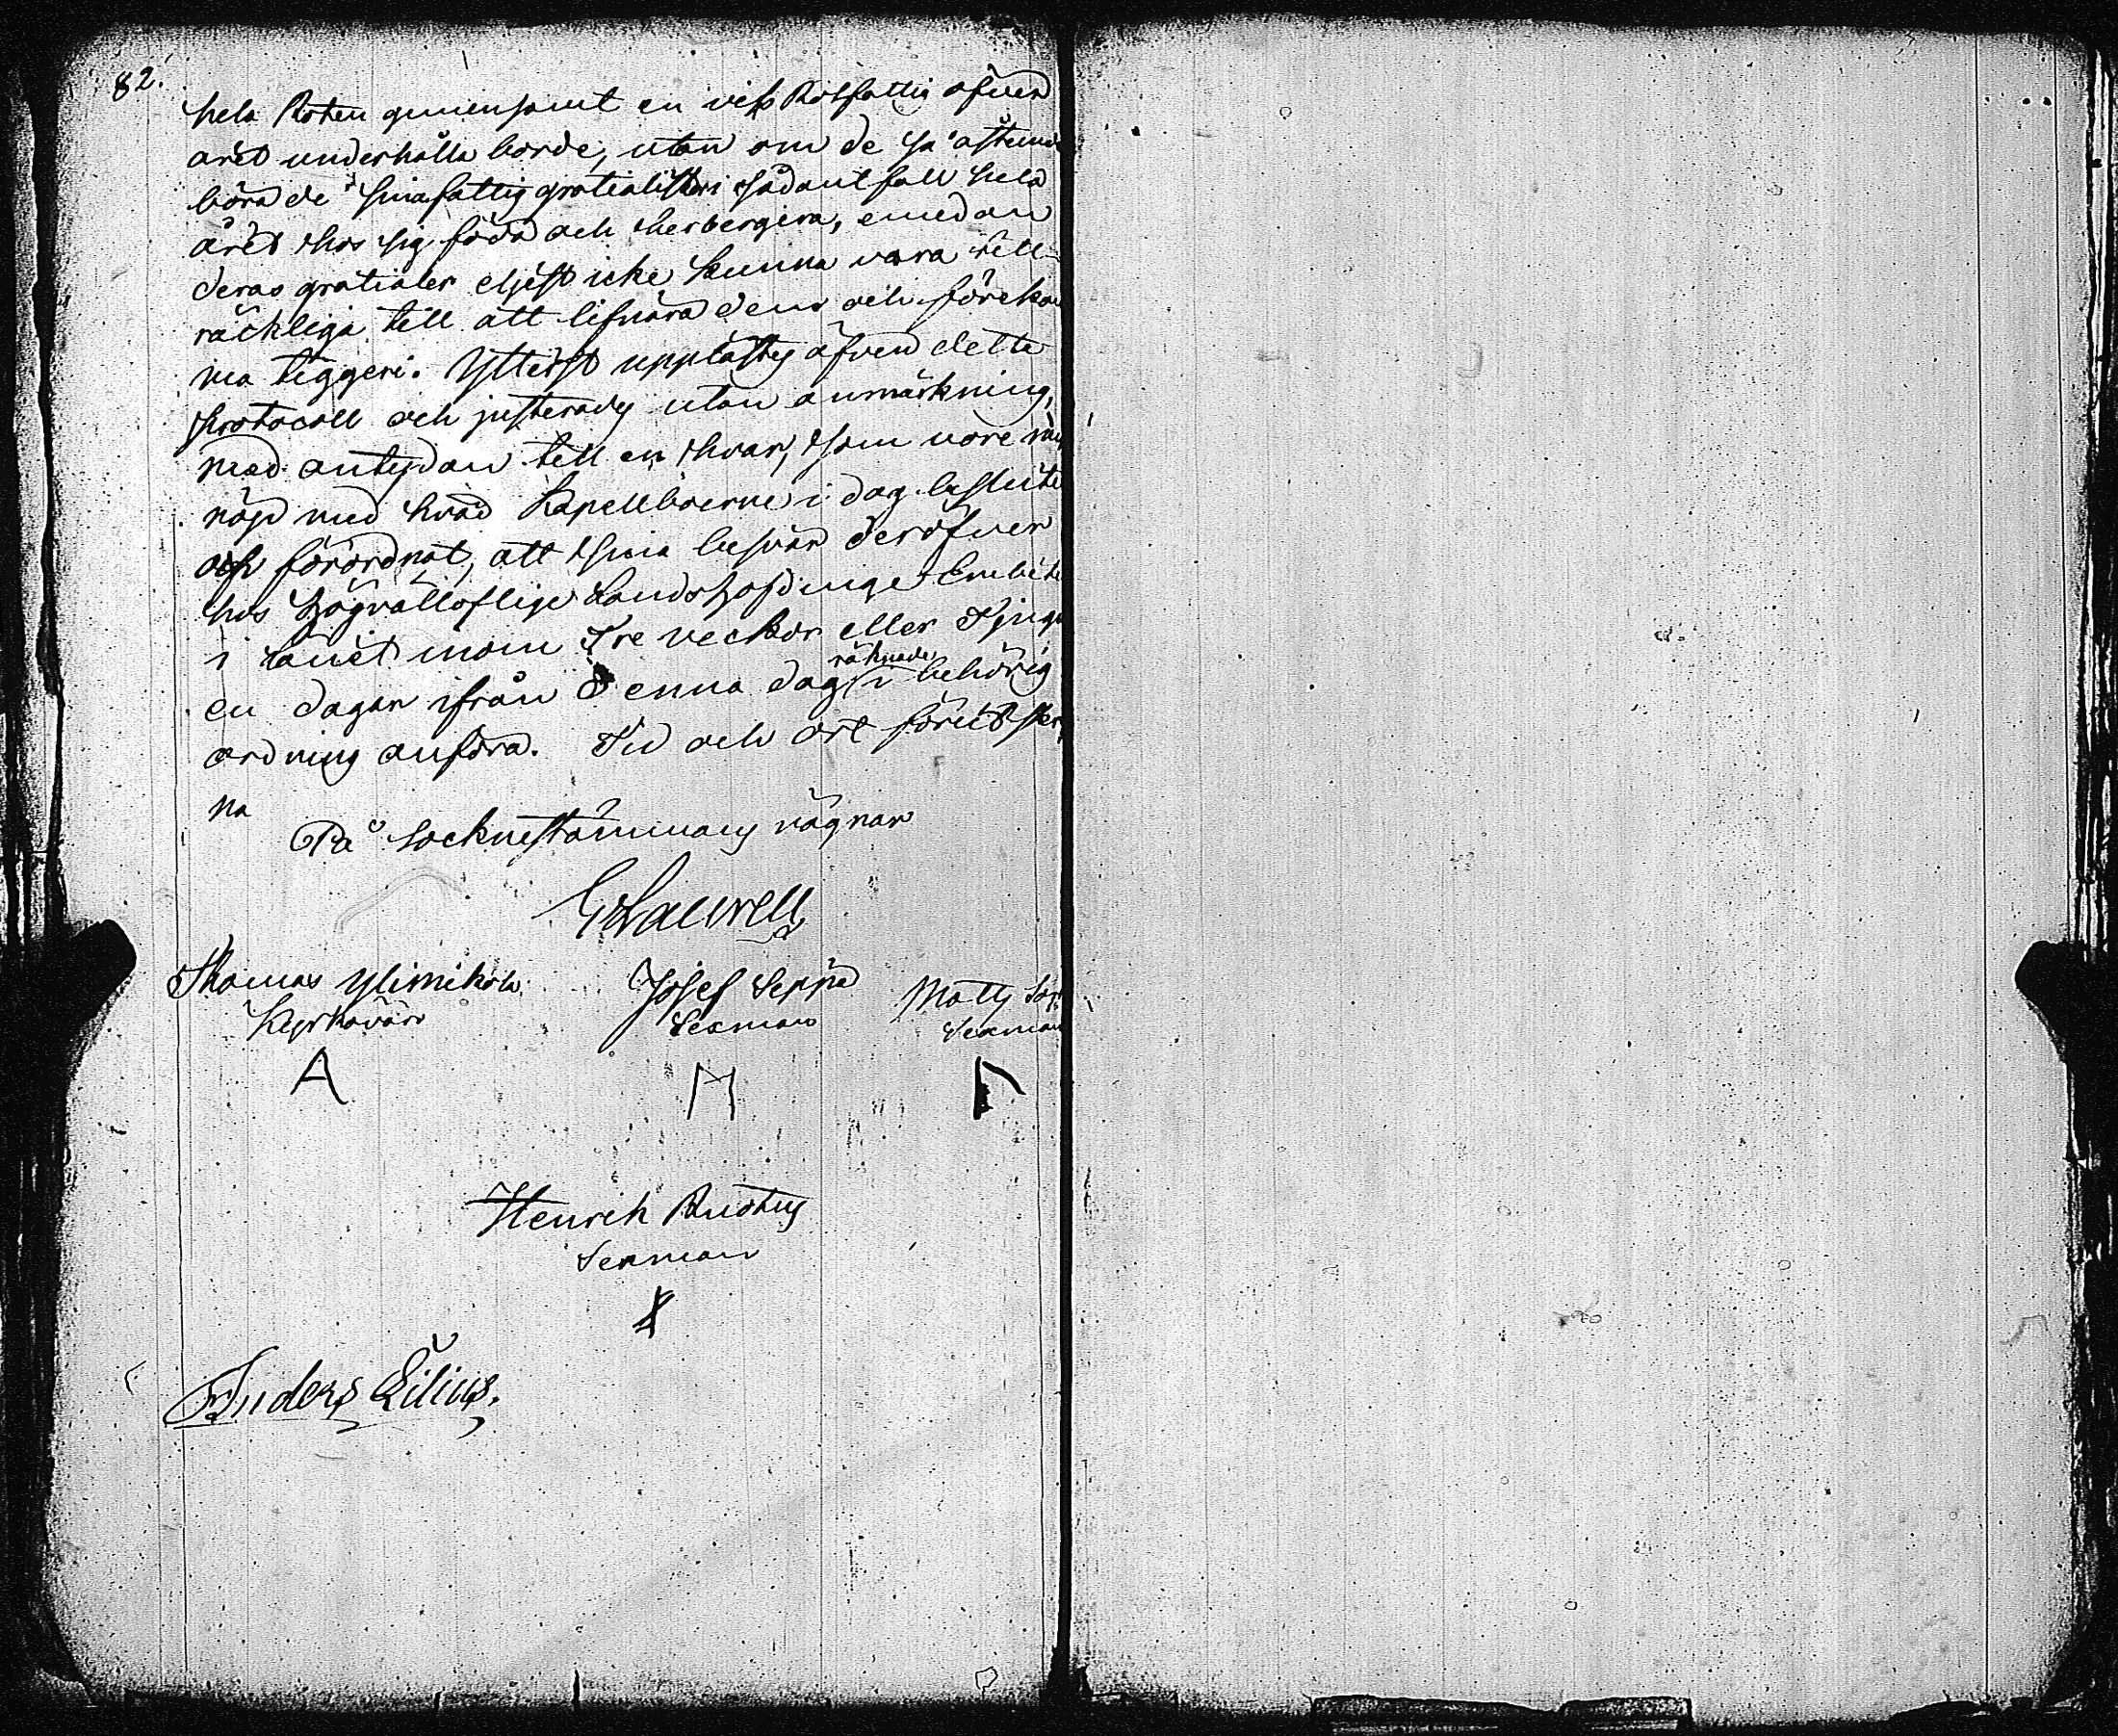 82.
hela Roten gemensamt en viss Rotfattig öfver
året underhålla borde, utan om de så åstunda
böra de sina fattig gratialister i sådant fall hela
året hos sig föda och herbergera, emedan
deras gratialer eljest icke kunna vara till-
räckliga till att lifnära dem och förekom
ma tiggeri. Ytterst upplästes äfven detta
Protocoll och justerades utan anmärkning,
med antydan till en hvar, som vore
nöjd med hvad Kapellboerne i dag beslutit
och förordnat, att sina besvär deröfver
hos Högvälloflige Landshöfdinge Embete
i länet inom Tre veckor eller Tjugu
en dagar ifrån denna dag räknade i behörig
ordning anföra. Tid och ort förutskr
na
På Socknestämmans vägnar
G Laurell
Thomas Ylimikola
Kyrkovärd
Josef Seppä
Sexman
Matts
Sexman
A
Henrik Ruotus
Sexman
Anders Eilius.